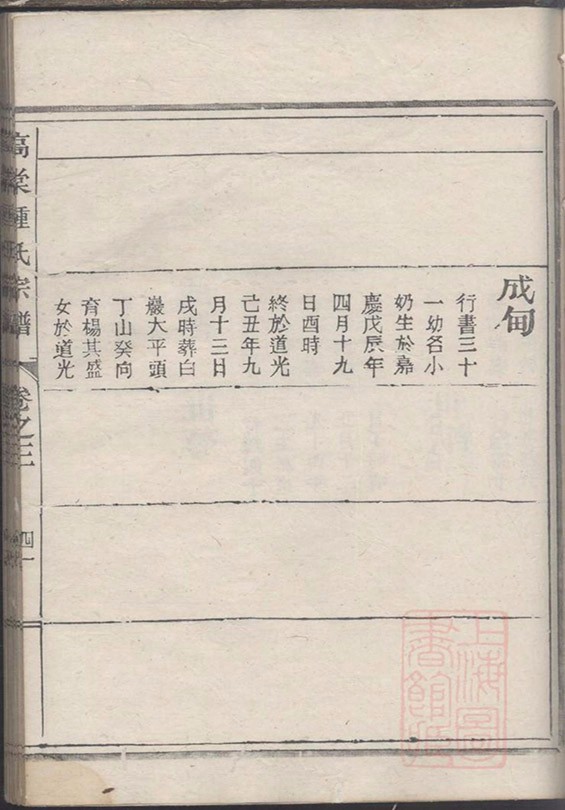 成甸
行書三十
一幼名小
奶生於嘉
慶戊辰年
四月十九
日酉時
終於道光
己丑年九
月十二日
戌時葬白
巖大平頭
丁山癸向
育楊其盛
女於道光
氏宗譜
卷之三
上海圖書館藏